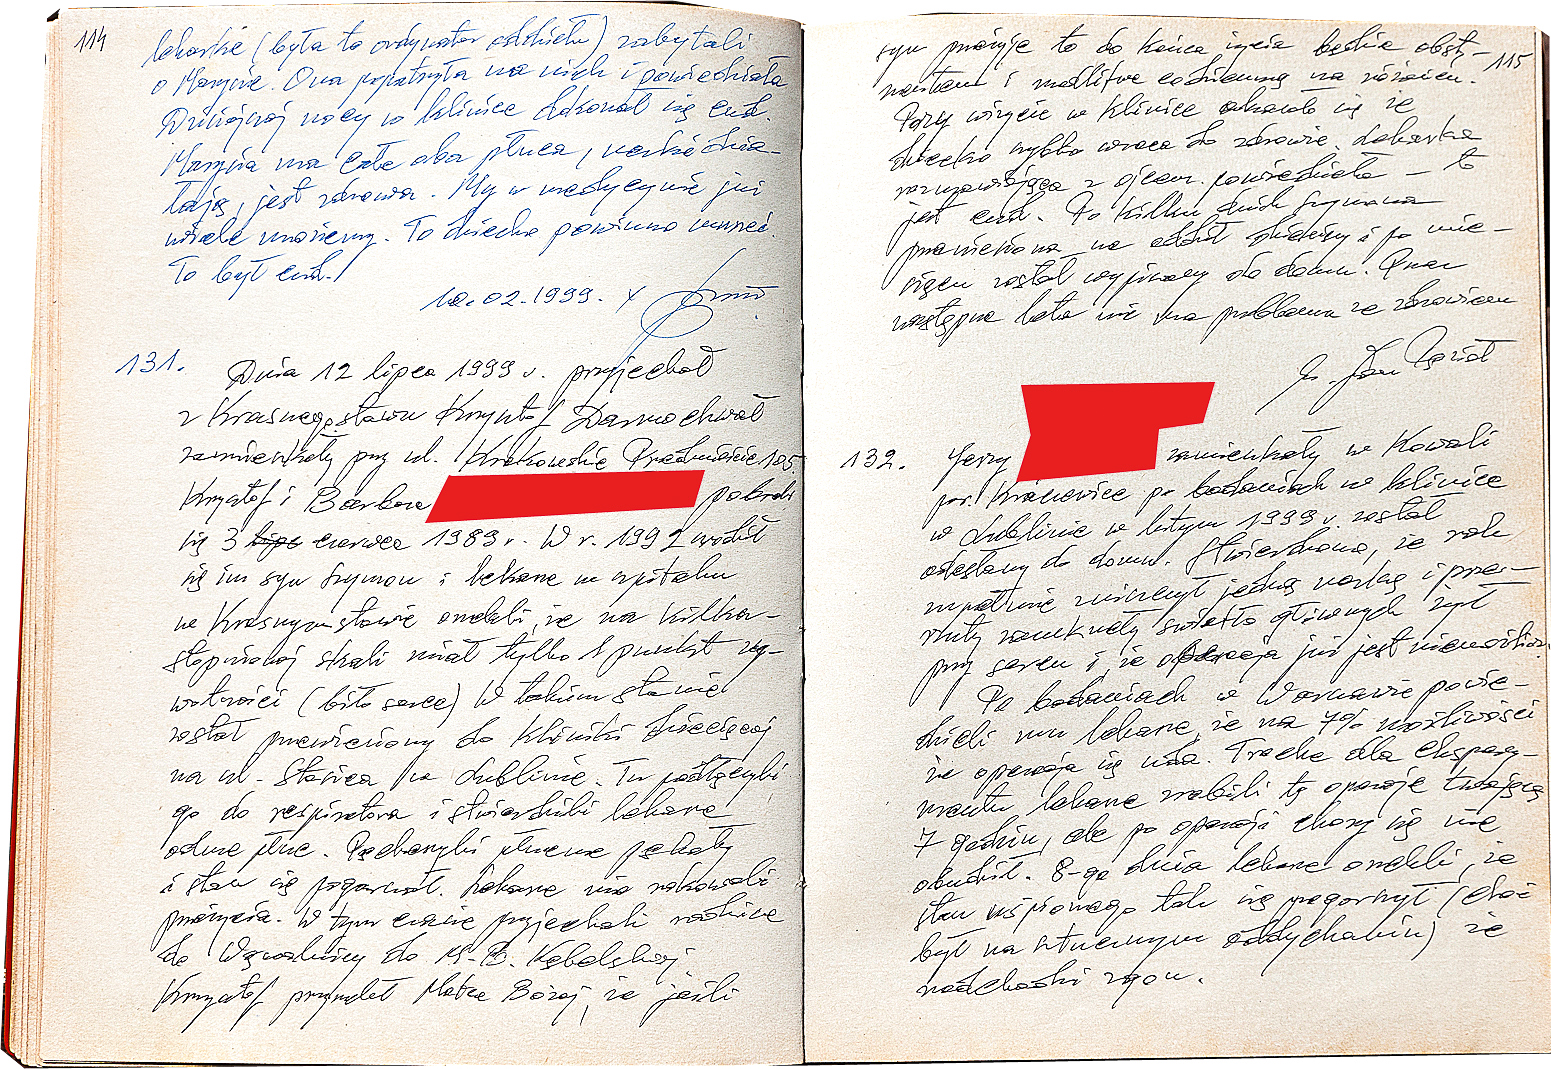 114
lekarkie (była to ordynator oddziału) zapytali
o Marysię. Ona popatrzyła na nich i powiedziała
Dzisiejszej nocy w klinice dokonał się cud.
Marysia ma całe oba płuca, nerki dzia-
łają, jest zdrowa. My w medycynie już
wiele możemy. To dziecko powinno umrzeć.
To był cud.
10.02.1999. x
131. Dnia 12 lipca 1999 r. przyjechał
z Krasnegostawu Krzysztof Darmochwał
zamieszkały przy ul. Krakowskie Przedmieście 105.
Krzysztof i Barbara pobrali
się 3 lipc czerwca 1989 r. W r. 1992 urodził
się im syn Szymon i lekarze w szpitalu
w Krasnymstawie orzekli, że na kilka-
stopniowej skali miał tylko 1 punkt ży-
wotności (biło serce) W takim stanie
został przewieziony do Kliniki Dziecięcej
na ul. Staszica w Lublinie. Tu podłączyli
go do respiratora i stwierdzili lekarze
odmę płuc. Pęcherzyki płucne pękały
i stan się pogarszał. Lekarze nie rokowali
przeżycia. W tym czasie przyjechali rodzice
do Wąwolnicy do M.B. Kębelskiej.
Krzysztof przyrzekł Matce Bożej, że jeśli
115
syn przeżyje to do końca życia będzie absty-
nentem i modlitwę codzienną na różańcu.
Przy wizycie w klinice okazało się że
dziecko szybko wraca do zdrowia. Lekarka
rozmawiająca z ojcem powiedziała – to
jest cud. Po kilku dniach Szymona
przeniesiono na oddział dziecięcy i po mie-
siącu został wypisany do domu. Przez
następne lata nie ma problemu ze zdrowiem
Ks. Jan
132. Jerzy zamieszkały w Kowali
po badaniach w klinice
w Lublinie w lutym 1999 r. został
odesłany do domu. Stwierdzono, że rak
wątroby zniszczył jedną nerkę i prze-
rzuty zamknęły światło głównych żył
przy sercu i, że operacja już jest niemożliwa.
Po badaniach w Warszawie powie-
dzieli mu lekarze, że na 7% możliwości
że operacja się uda. Trochę dla ekspery-
mentu lekarze zrobili tę operację trwającą
7 godzin, ale po operacji chory się nie
obudził. 8-go dnia lekarze orzekli, że
stan uśpionego tak się pogorszył (choć
był na sztucznym oddychaniu) że
nadchodzi zgon.